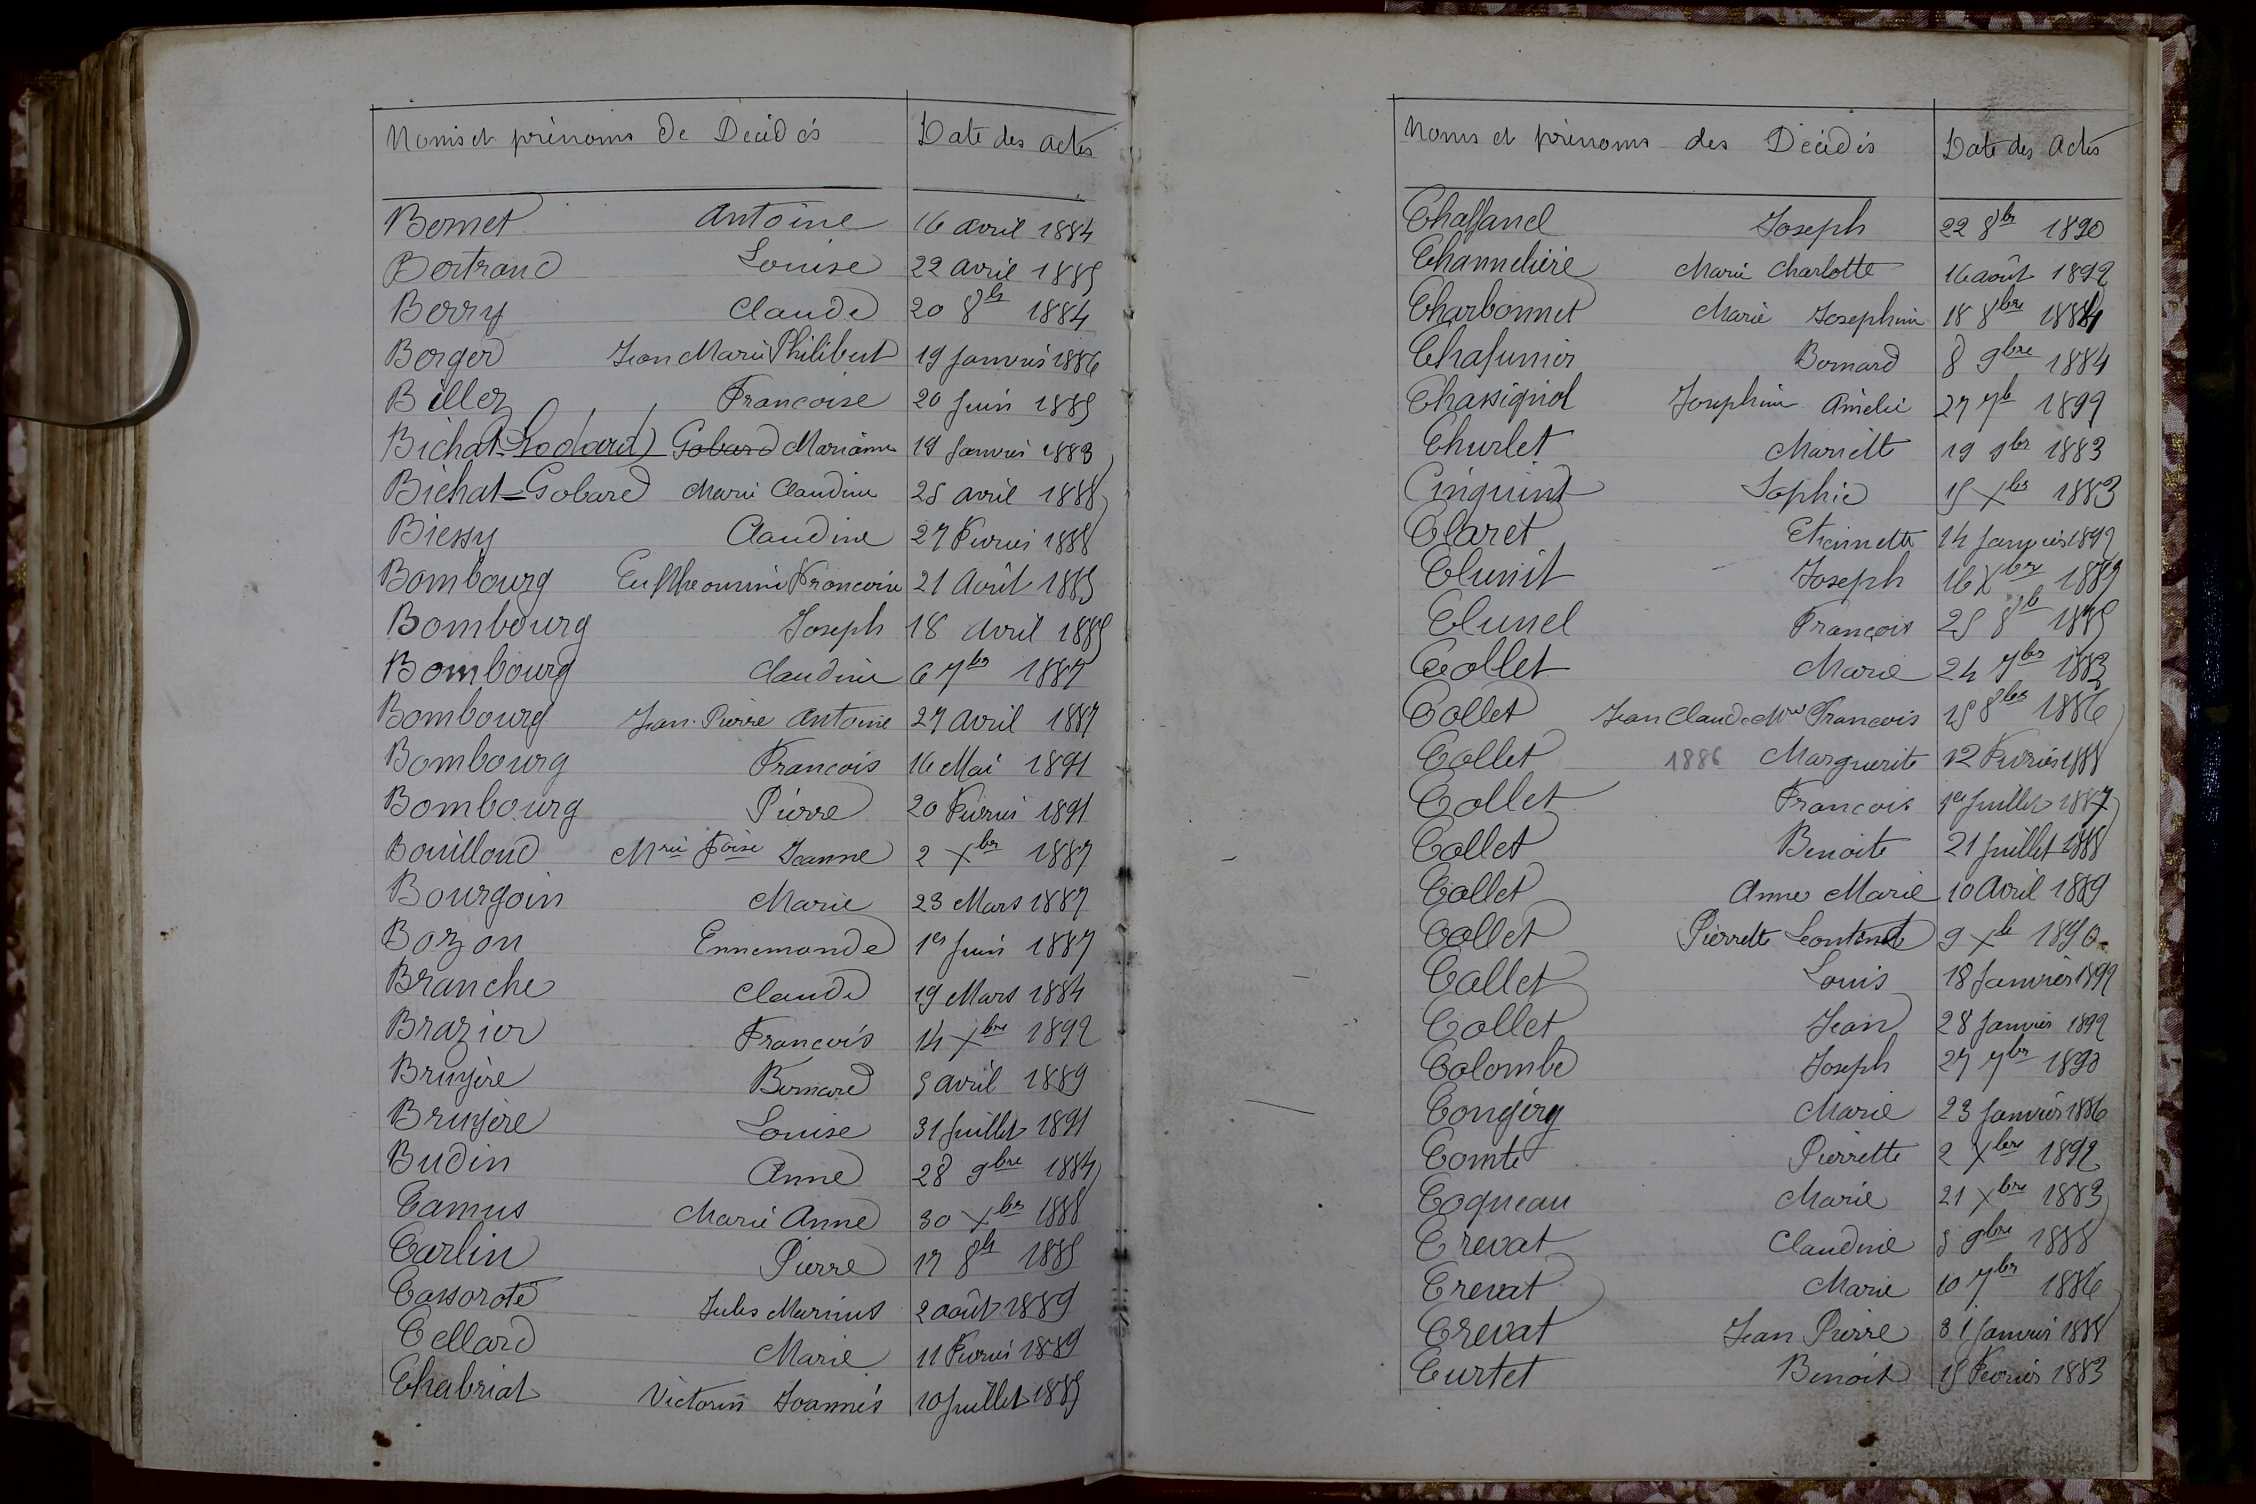 Noms et prénoms de Décédés Date des actes
Bernet Antoine 16 avril 1884
Bertrand Louise 22 avril 1885
Berry Claude 20 8br 1884
Berger Jean Marie Philibert 19 Janvier 1886
Billez Francoise 20 Juin 1885
Bichat Godard Gobard Marianne 19 Janvier 1883
Bichat=Gobard Marie Claudine 25 avril 1888
Biessy Claudine 27 Fevrier 1888
Bombourg Francoise 21 Août 1885
Bombourg Joseph 18 avril 1885
Bombourg Claudine 6 7br 1887
Bombourg Jean-Pierre Antoine 27 avril 1887
Bombourg Francois 16 Mai 1891
Bombourg Pierre 20 Fevrier 1891
Bouilloud Mrie Foise Jeanne 2 Xbr 1887
Bourgoin Marie 23 Mars 1887
Bozon Ennemonde 1er Juin 1887
Branche Claude 19 Mars 1884
Brazier Francois 14 Xbre 1892
Bruyère Bernard 5 avril 1889
Bruyère Louise 31 Juillet 1891
Budin Anne 28 9bre 1884
Camus Marie Anne 30 Xbr 1888
Carlin Pierre 17 8br 1885
Cassorote Jules Marius 2 août 1889
Cellard Marie 11 Fevrier 1889
Chabriat Victorin Joannès 10 Juillet 1885
Noms et prénoms des Décédés Date des Actes
Chaffanel Joseph 22 8br 1890
Channelière Marie Charlotte 16 août 1892
Charbonnet Marie Josephine 18 8bre 1884
Chafumier Bernard 8 9bre 1884
Chassignol Josephine Amélie 27 7b 1892
Churlet Mariette 19 9br 1883
Cinquind Sophie 15 Xbr 1883
Claret Etiennette 14 Janvier 1892
Clunit Joseph 16 Xbre 1889
Clunel François 25 8b 1885
Collet Marie 24 7br 1883
Collet Jean Claude Mie Francois 15 8br 1886
Collet 1886 Marguerite 12 Fevrier 1888
Collet Francois 1er Juillet 1887
Collet Benoite 21 Juillet 1888
Collet Anne Marie 10 Avril 1889
Collet Pierrette Leontine 9 Xb 1890
Collet Louis 18 Janvier 1892
Collet Jean 28 Janvier 1892
Colombe Joseph 27 7br 1890
Comgéry Marie 23 Janvier 1886
Comte Pierrette 2 Xbre 1892
Coqueau Marie 21 Xbre 1883
Crevat Claudine 5 9bre 1888
Crevat Marie 10 7br 1886
Crevat Jean Pierre 31 Janvier 1888
Curtet Benoit 15 Fevrier 1883